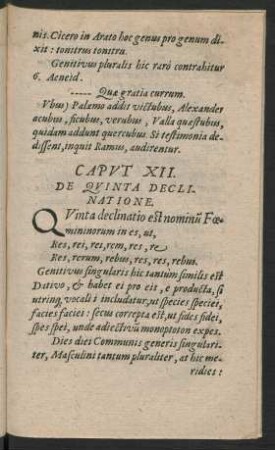 nis. Cicero in Arato hoc genus pro genum di-
xit: tonitrus tonitru.
Genitivus pluralis hic rarò contrahitur
6. Aeneid.
----- Quæ gratia currum.
Vbus) Palæmo addit victubus, Alexander
acubus, ficubus, verubus, Valla quæstubus,
quidam addunt quercubus. Si testimonia de-
dissent, inquit Ramus, audirentur.
CAPVT XII.
DE QVINTA DECLI-
NATIONE.
QVinta declinatio est nominũ Fœ-
mininorum in es, ut,
Res, rei, rei, rem, res, re
Res, rerum, rebus, res, res, rebus.
Genitivus singularis hic tantùm similis est
Dativo, & habet ei pro eis, e producta, si
utrinq; vocali includatur, ut species speciei,
facies faciei: secus correpta est, ut fides fidei,
spes spei, unde adiectivũ monoptoton expes.
Dies diei Communis generis singulari-
ter, Masculini tantum pluraliter, at hic me-
ridies: